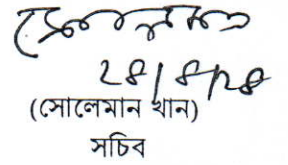 ২৪/৪/২৪
(সোলেমান খান)
সচিব